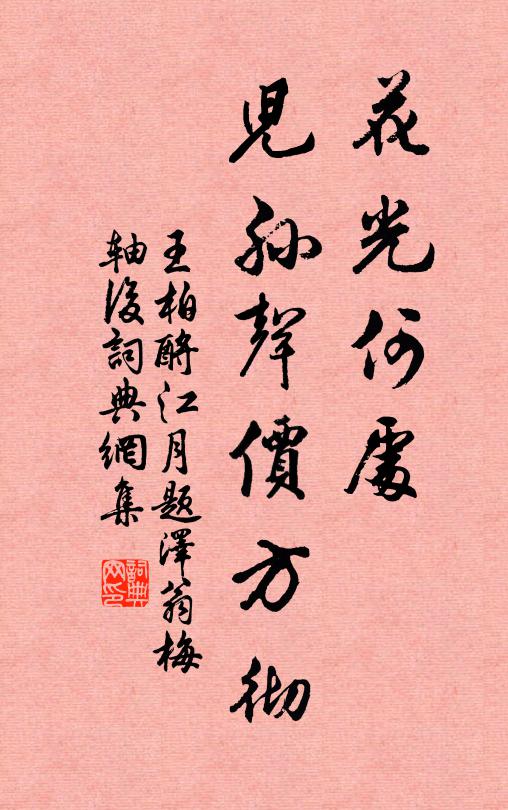 花光何處
兒孫聲價方彻
王柏酹江月题澤翁梅
轴後詞典網集
詞典网印